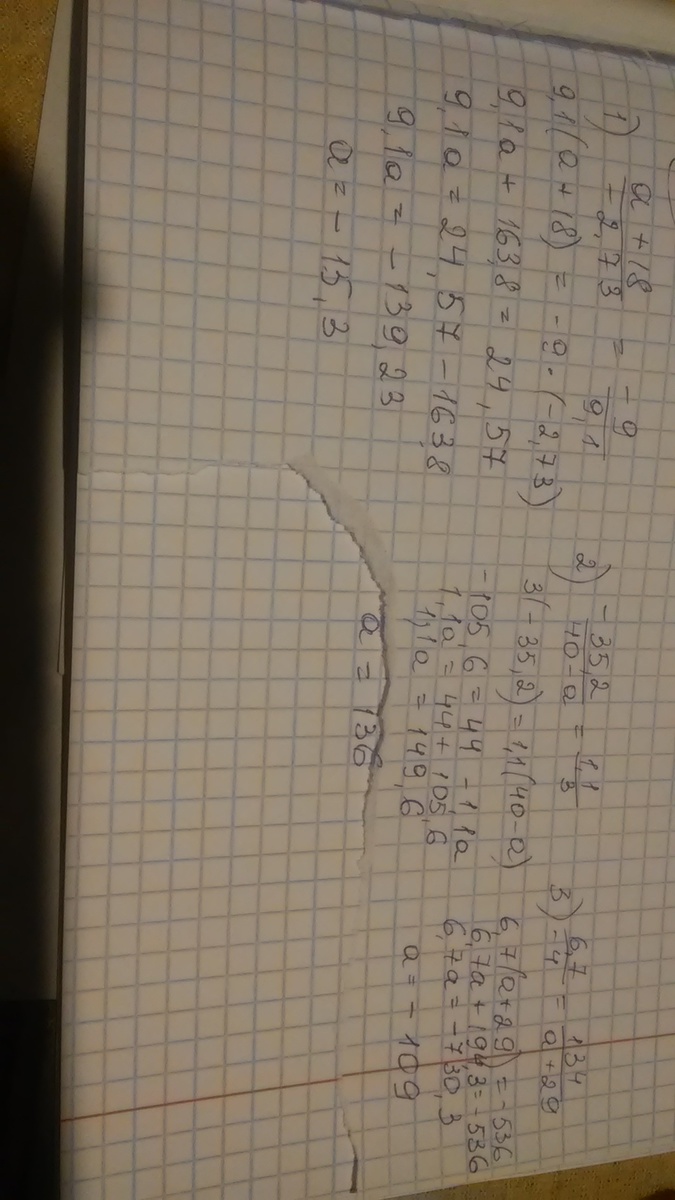 1) (a+18)/(-2,73) = -9/9,1
9,1(a+18) = -9·(-2,73)
9,1a + 163,8 = 24,57
9,1a = 24,57 - 163,8
9,1a = -139,23
a = -15,3
2) -35,2/(40-a) = 1,1/3
3(-35,2) = 1,1(40-a)
-105,6 = 44 - 1,1a
1,1a = 44 + 105,6
1,1a = 149,6
a = 136
3) 6,7/(-4) = 134/(a+29)
6,7(a+29) = -536
6,7a + 194,3 = -536
6,7a = -730,3
a = -109